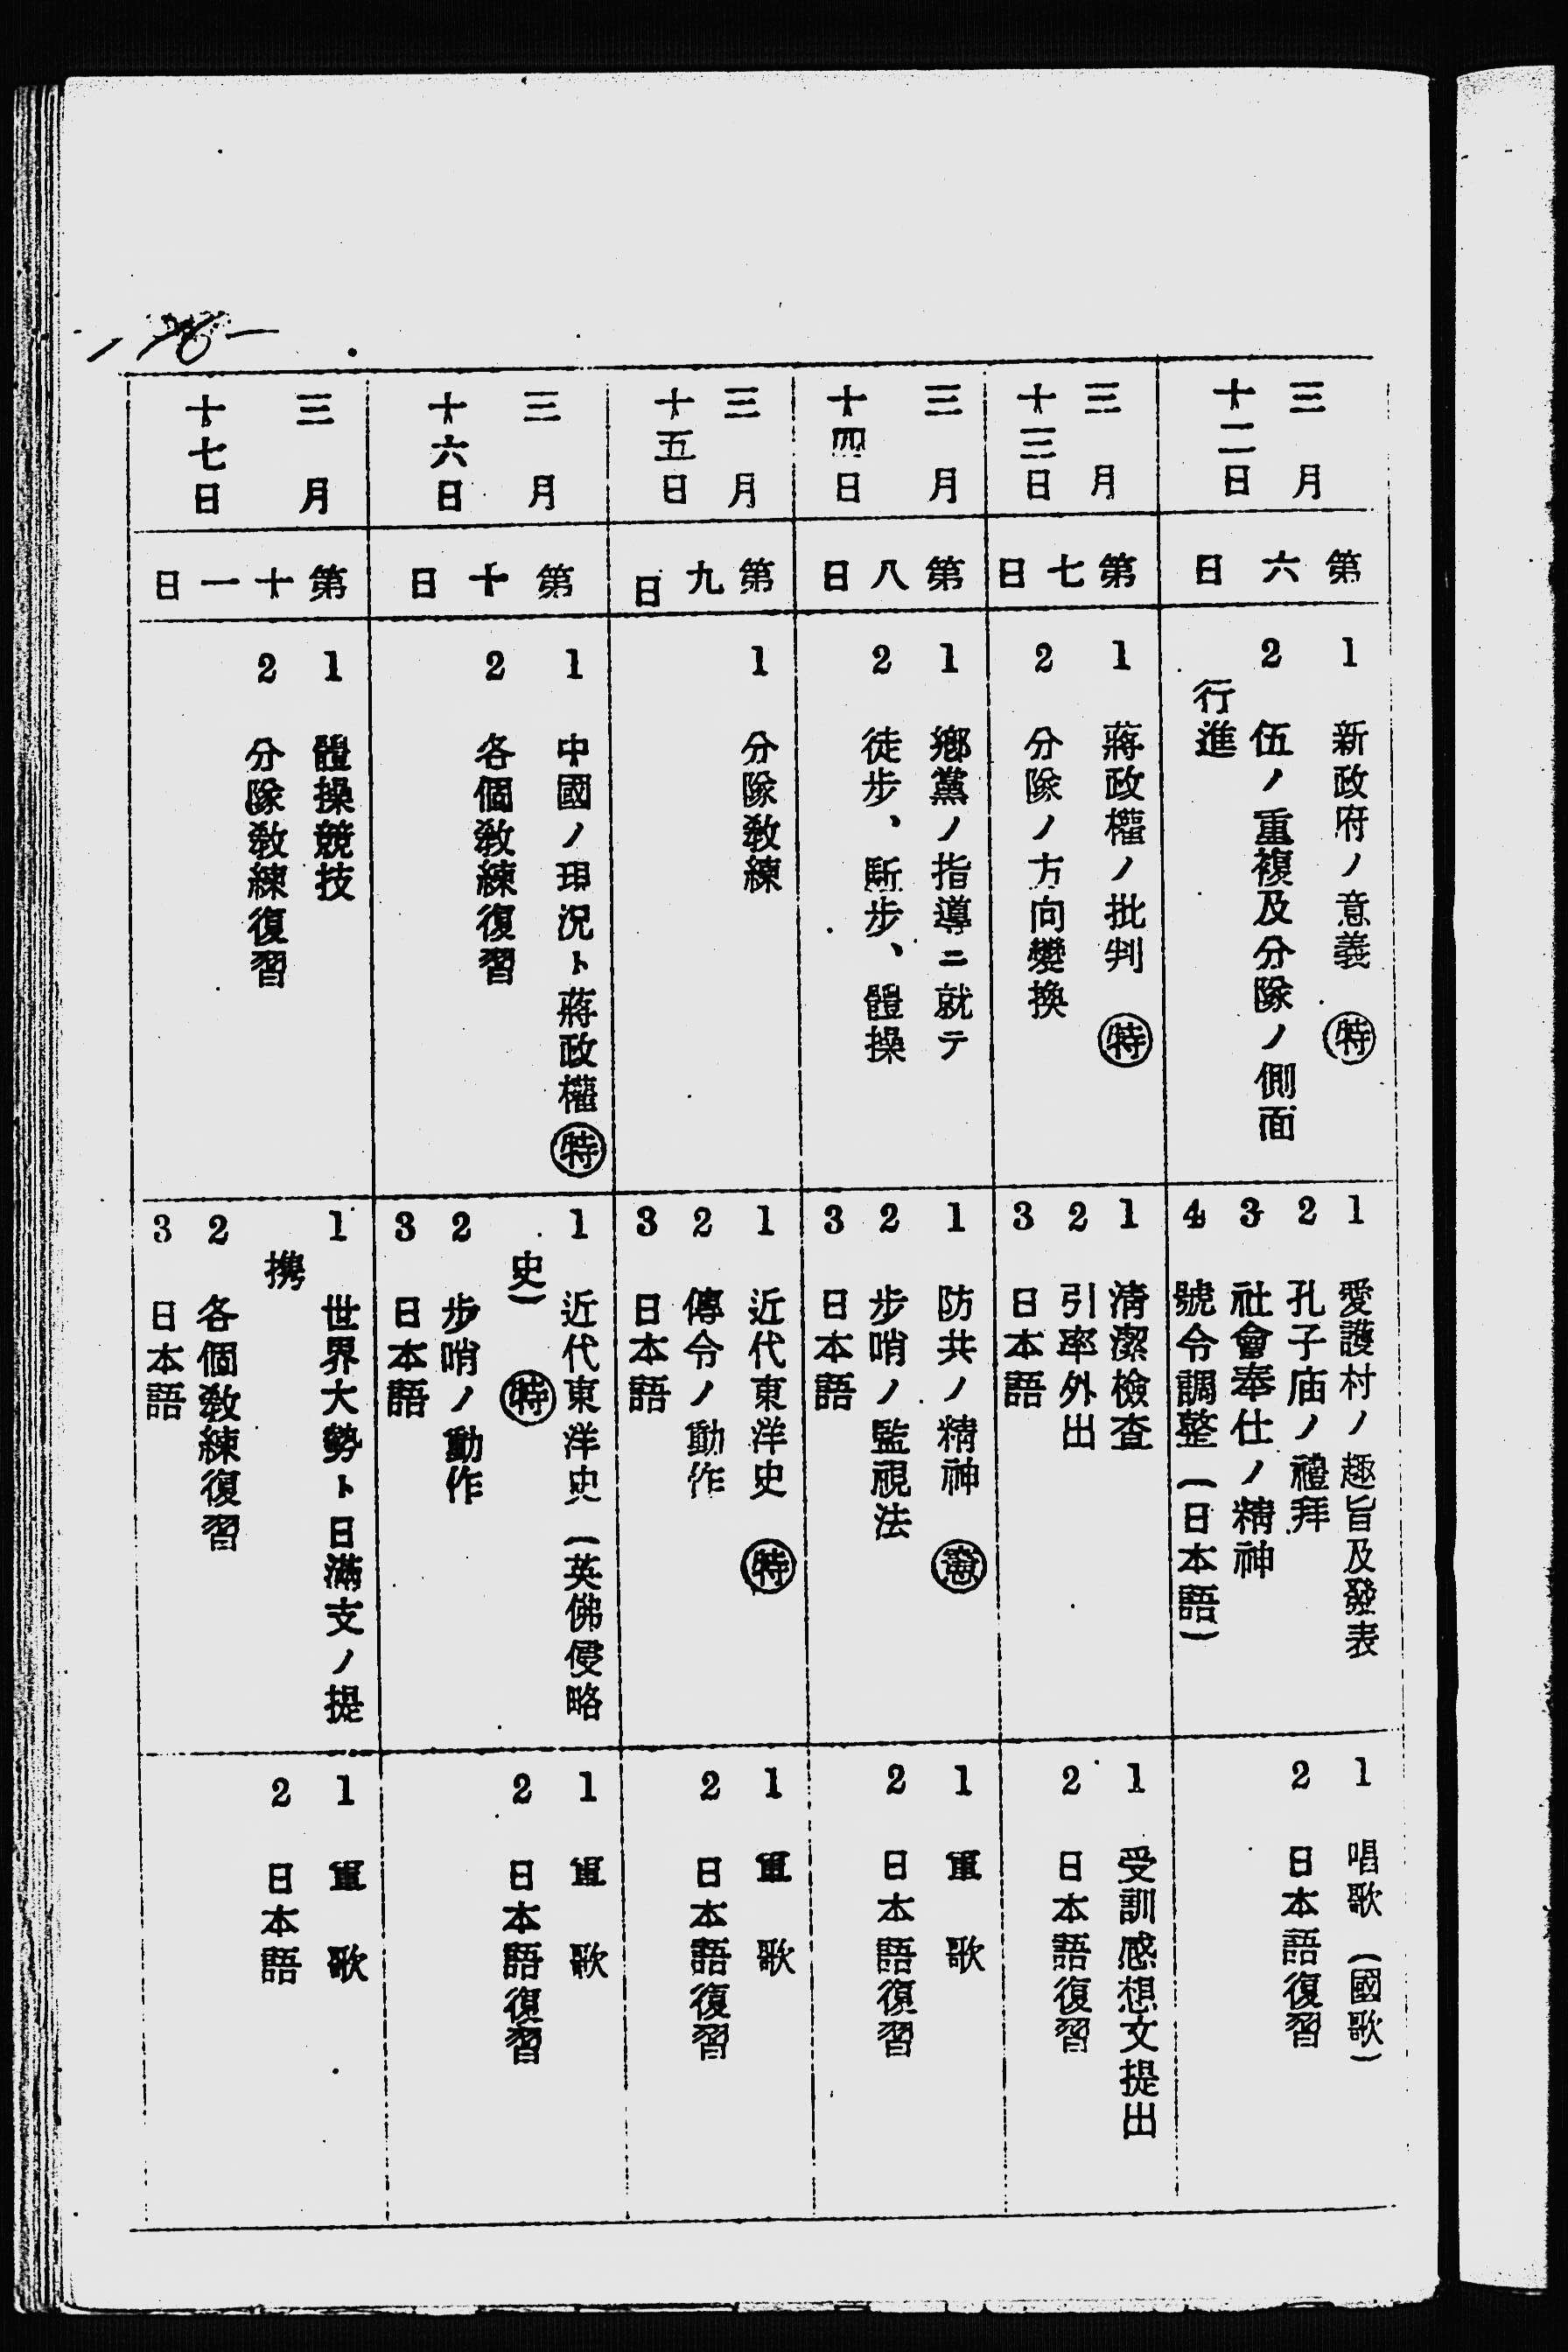 三月
十二日
第六日
1 新政府ノ意義 ㊕
2 伍ノ重複及分隊ノ側面
行進
1 愛護村ノ趣旨及發表
2 孔子庙ノ禮拜
3 社會奉仕ノ精神
4 號令調整(日本語)
1 唱歌(國歌)
2 日本語復習
三月
十三日
第七日
1 蔣政權ノ批判 ㊕
2 分隊ノ方向變換
1 淸潔檢査
2 引率外出
3 日本語
1 受訓感想文提出
2 日本語復習
三月
十四日
第八日
1 鄕黨ノ指導ニ就テ
2 徒步、斷步、體操
1 防共ノ精神 憲
2 步哨ノ監視法
3 日本語
1 軍歌
2 日本語復習
三月
十五日
第九日
1 分隊敎練
1 近代東洋史 ㊕
2 傳令ノ動作
3 日本語
1 軍歌
2 日本語復習
三月
十六日
第十日
1 中國ノ現況ト蔣政權 ㊕
2 各個敎練復習
1 近代東洋史(英佛侵略
史) ㊕
2 步哨ノ動作
3 日本語
1 軍歌
2 日本語復習
三月
十七日
第十一日
1 體操競技
2 分隊敎練復習
1 世界大勢ト日滿支ノ提
携
2 各個敎練復習
3 日本語
1 軍歌
2 日本語